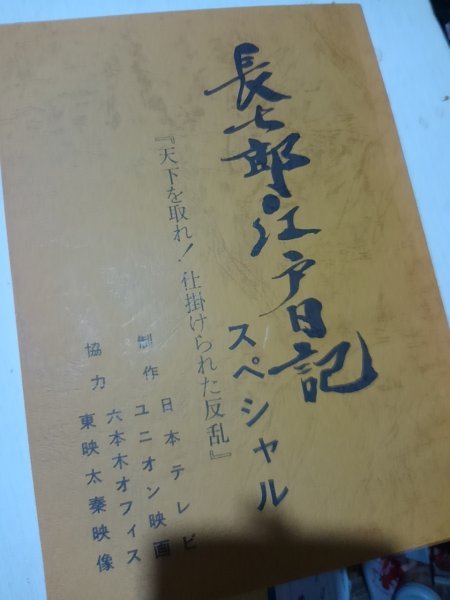 長七郎・江戸日記
スペシャル
『天下を取れ！仕掛けられた反乱』
制作 日本テレビ
ユニオン映画
六本木オフィス
協力 東映太秦映像